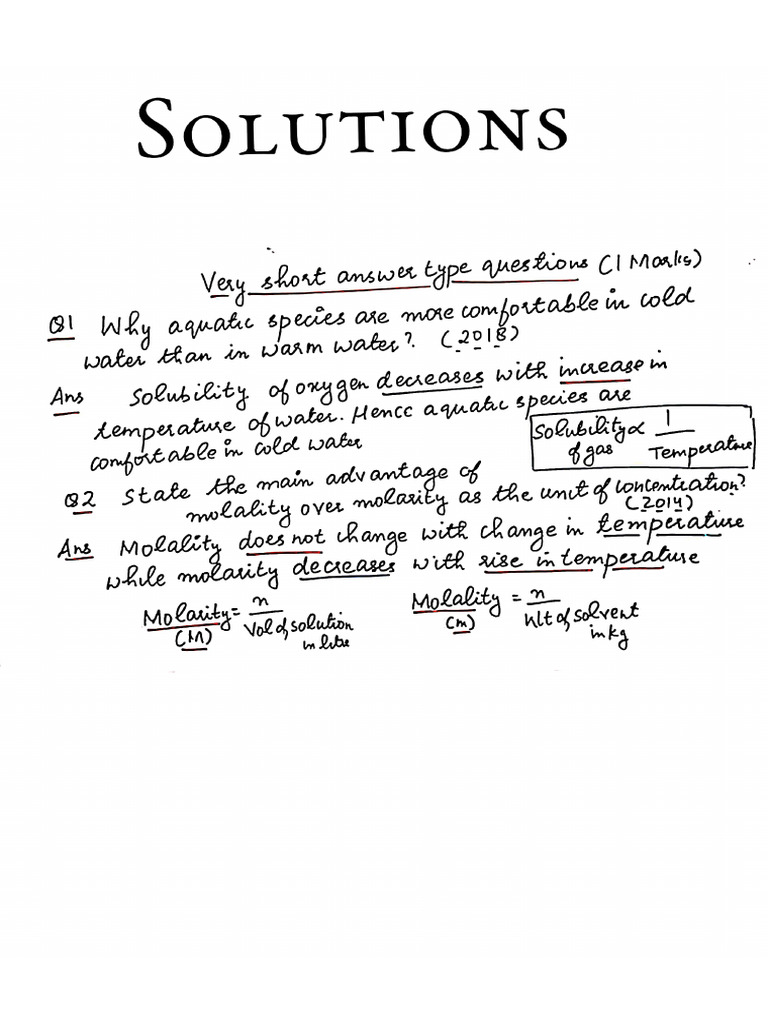 SOLUTIONS
Very short answer type questions (1 Marks)
Q1 Why aquatic species are more comfortable in cold
water than in warm water? (2018)
Ans Solubility of oxygen decreases with increase in
temperature of water. Hence aquatic species are
comfortable in cold water
Solubility ∝ 1
of gas Temperature
Q2 State the main advantage of
molality over molarity as the unit of concentration?
(2014)
Ans Molality does not change with change in temperature
while molarity decreases with rise in temperature
Molarity = n Molality = n
(M) Vol of solution (m) Wt of solvent
in litre in kg